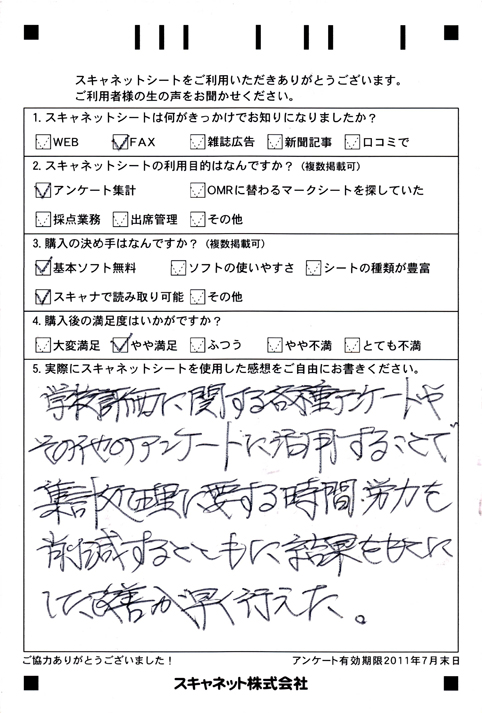 スキャネットシートをご利用いただきありがとうございます。
ご利用者様の生の声をお聞かせください。
1. スキャネットシートは何がきっかけでお知りになりましたか？
WEB FAX 雑誌広告 新聞記事 口コミで
2. スキャネットシートの利用目的はなんですか？（複数掲載可）
アンケート集計 OMRに替わるマークシートを探していた
採点業務 出席管理 その他
3. 購入の決め手はなんですか？（複数掲載可）
基本ソフト無料 ソフトの使いやすさ シートの種類が豊富
スキャナで読み取り可能 その他
4. 購入後の満足度はいかがですか？
大変満足 やや満足 ふつう やや不満 とても不満
5. 実際にスキャネットシートを使用した感想をご自由にお書きください。
学校評価に関する各種アンケートや
その他のアンケートに活用することで
集計処理に要する時間・労力を
削減するとともに結果をもとに
した改善が早く行えた。
ご協力ありがとうございました！ アンケート有効期限2011年7月末日
スキャネット株式会社